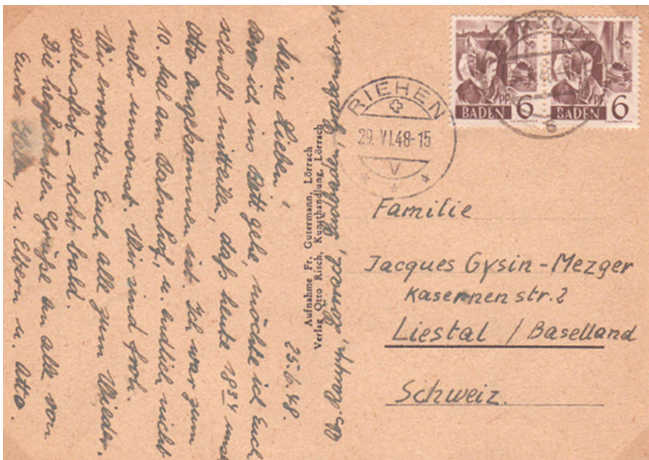 25.6.48.
Meine Lieben!
Bevor ich ins Bett gehe, möchte ich Euch
schnell mitteilen, daß heute 18³⁴ unser
Otto angekommen ist. Ich war zum
10. Mal am Bahnhof, u. endlich nicht
mehr umsonst. Wir sind froh.
Wir erwarten Euch alle zum Wieder-
sehensfest – recht bald.
Die herzlichsten Grüße an alle von
Eurer u. Eltern u. Otto.
Aufnahme Fr. Gutermann, Lörrach
Verlag Otto Risch, Kunsthandlung, Lörrach
BADEN 6
BADEN 6
RIEHEN
29.VI.48-15
V
Familie
Jacques Gysin-Mezger
Kasernenstr. 2
Liestal / Baselland
Schweiz.